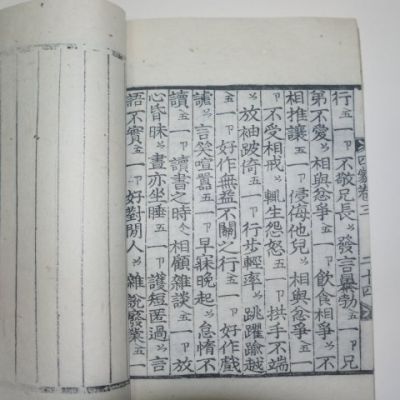 卷三 二十四
行五一卩不敬兄長ソ發言暴勃五一卩兄
弟不愛ソ相與忿爭五一卩飮食相爭ソ不
相推讓五一卩侵侮他兒ソ相與忿爭五一
卩不受相戒ソ輒生怨怒五一卩拱手不端
ソ放袖跛倚五一卩行步輕率ソ跳躍踰越
五一卩好作無益不關之行五一卩好作戲
謔ソ言笑喧囂五一卩早寐晚起ソ怠惰不
讀五一卩讀書之時ソ相顧雜談五一卩放
心昏昧ソ晝亦坐睡五一卩護短匿過ソ言
語不實五一卩好對閒人ソ雜說廢業五一